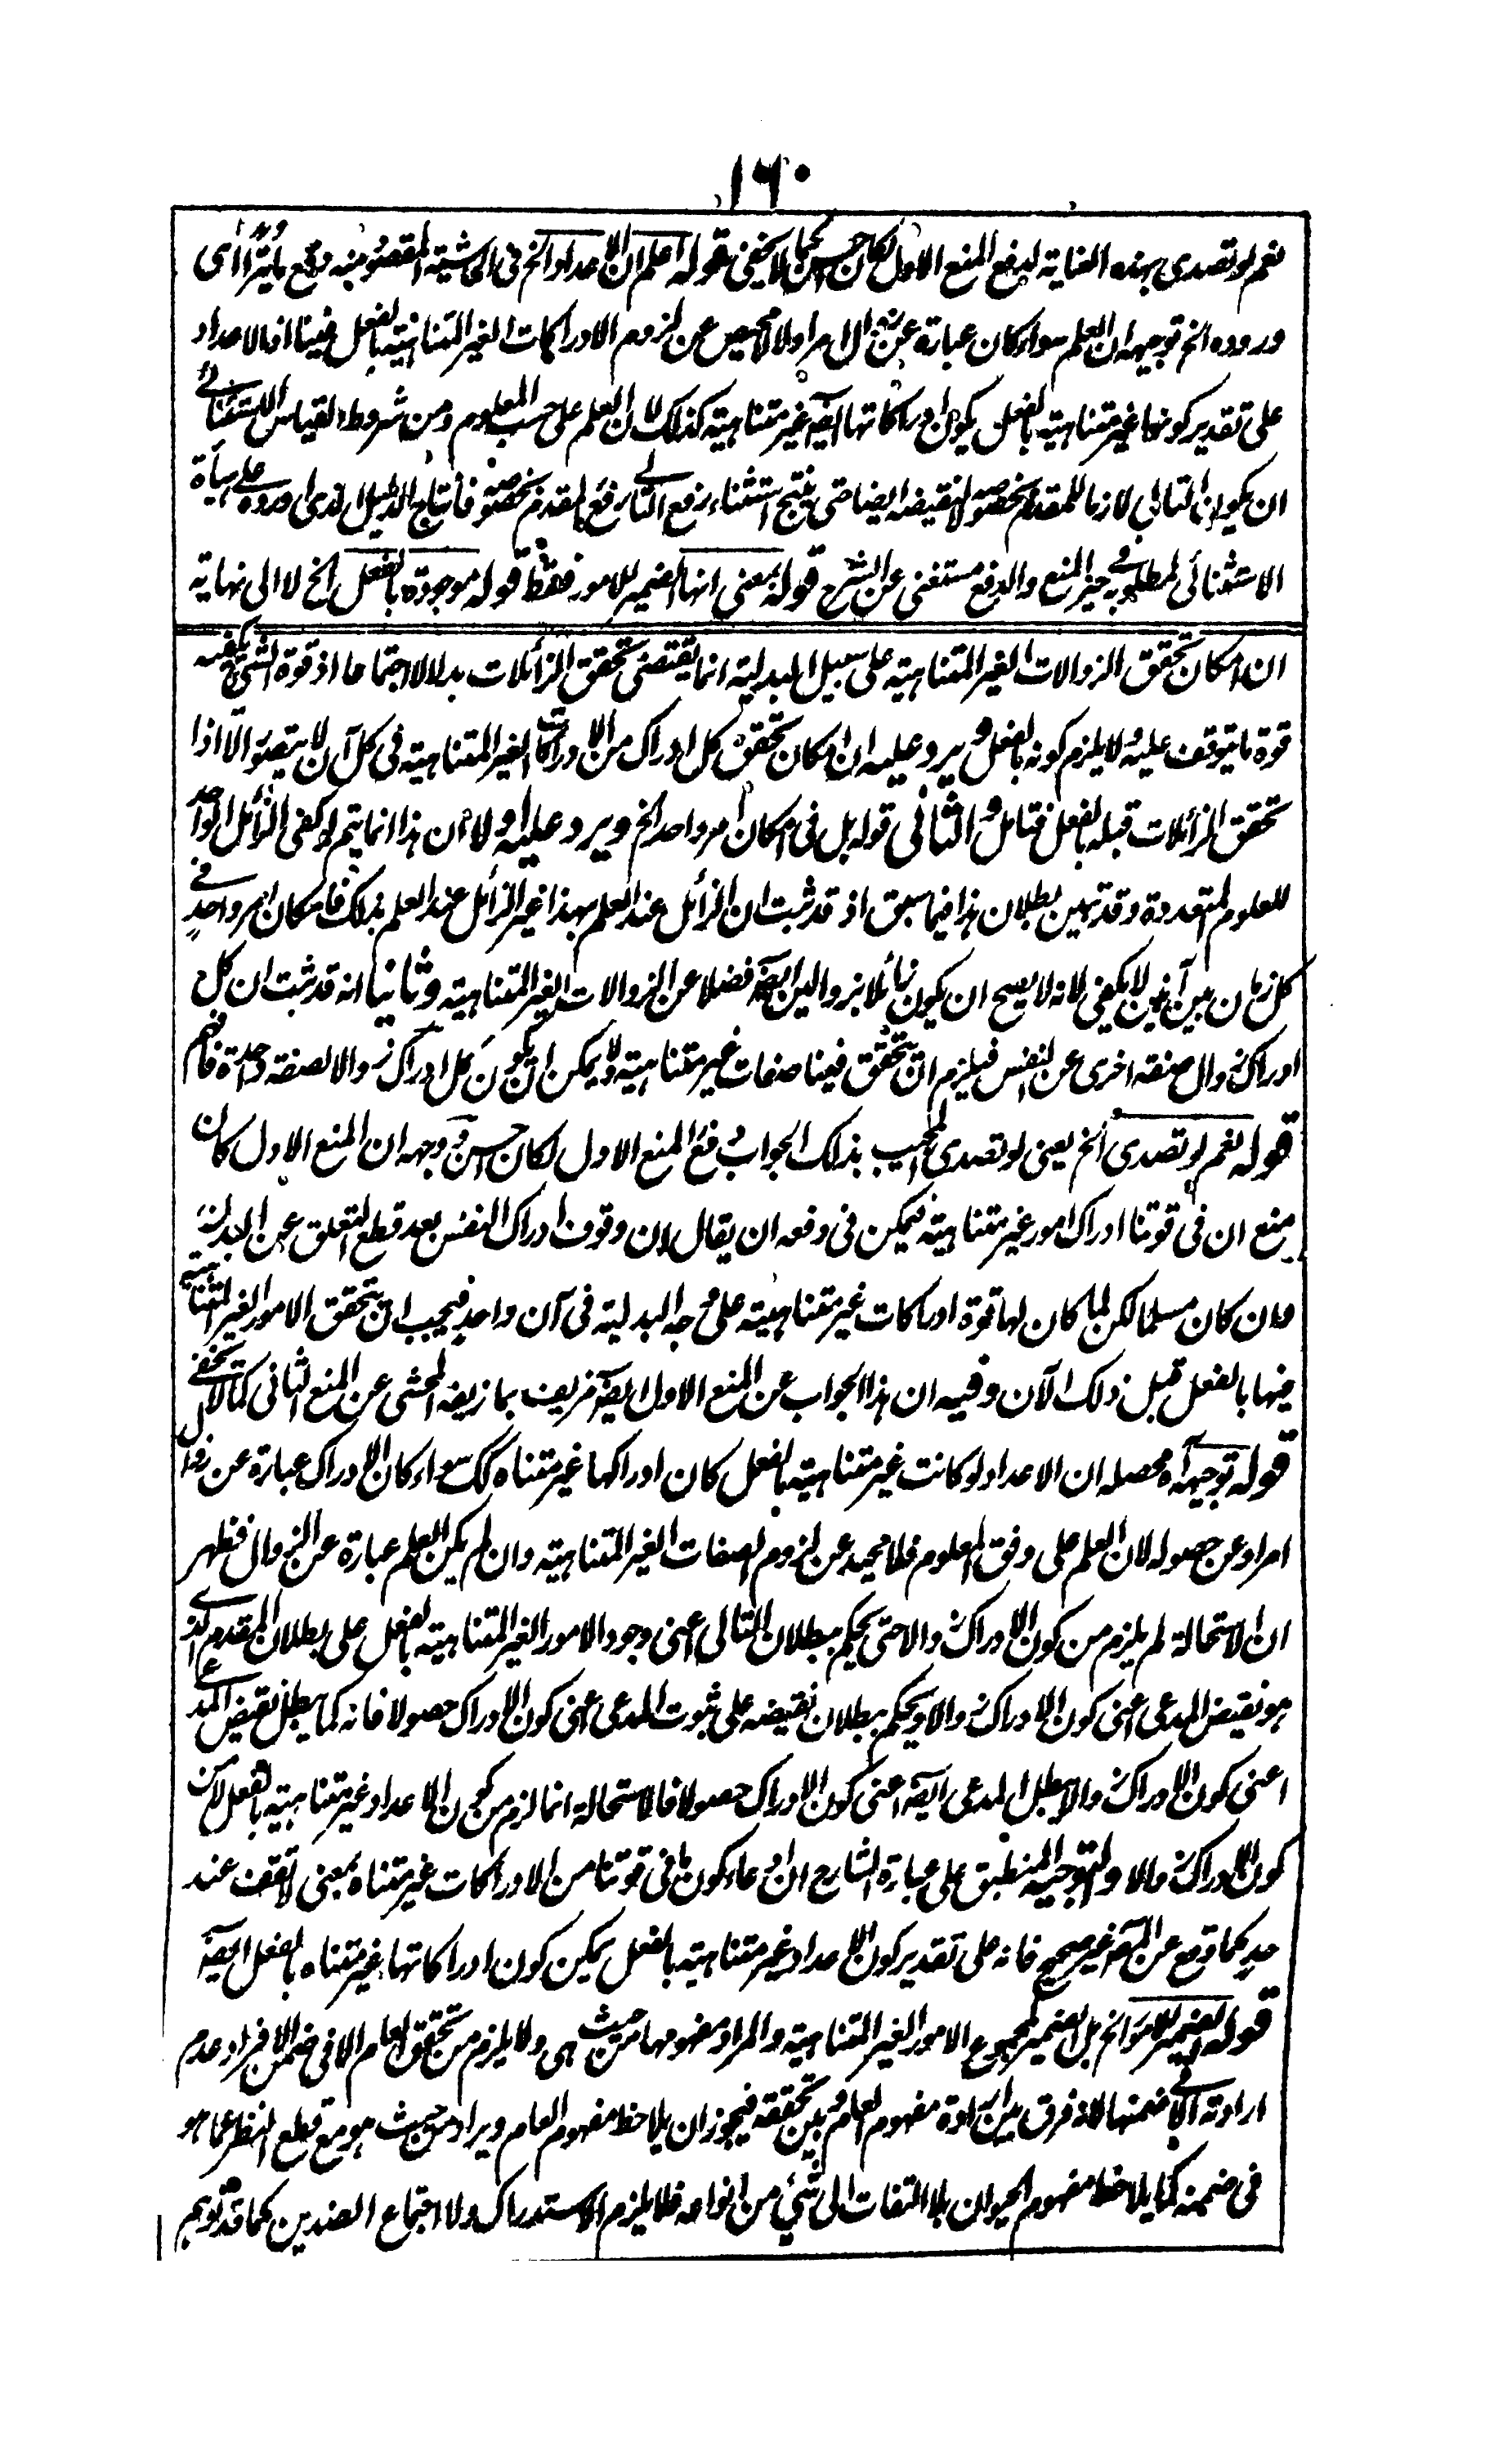 ١٦٠
نعم لو تصدى بهذه العناية لدفع المنع الاول لكان حسن كما لا يخفى قوله اعلم ان الاعداد الخ فى الحاشية المقصود منه دفع ما يترااى
وروده الخ توجيهه ان العلم سواء كان عبارة عن الامر اولا لا محيص عن لزوم الادراكات الغير المتناهية بالفعل فينا اذ الاعداد
على تقدير كونها غير متناهية بالفعل يكون ادراكاتها ايضہ غير متناهية كذلك لان العلم على حسب المعلوم ومن شروط القياس الاستثنائے
ان يكون التالى لازما للمقدم بخصوصه لا لنقيضه ايضا حتى ينتج استثناء رفع التالے رفع المقدم بخصوصه فانتاج الدليل الذى اوردوه على هيأة
الاستثنائى لمطلوبه فے حيز المنع والدفع مستغنى عن الشرح قوله بمعنى انها الضمير للامور فقط قوله موجودة بالفعل الخ لا الى نهاية
ان امكان تحقق الزوالات الغير المتناهية على سبيل البدلية انما يقتضى تحقق الزائلات بدلا لا اجتماعا اذ قوة الشئ يكفيه
قوة ما يتوقف عليه ولا يلزم كونه بالفعل ويرد عليه ان امكان تحقق كل ادراك من الادراكات الغير المتناهية فى كل آن لا يتصور الّا اذا
تحقق الزائلات قبله بالفعل فتامل والثانى قوله بل فى امكان امر واحد الخ ويرد عليه اولا ان هذا انما يتم لو كفى الزائل الواحد
للعلوم المتعددة وقد تبين بطلان هذا فيما سبق اذ قد ثبت ان الزائل عند العلم بهذا غير الزائل عند العلم بذلك فامكان امر واحد فے
كل زمان بين آنين لا يكفى لانه لا يصح ان يكون زائلا بزوالين ايضہ فضلا عن الزوالات الغير المتناهية وثانيا انه قد ثبت ان كل
ادراك زوال صفة اخرى عن النفس فيلزم ان يتحقق فينا صفات غير متناهية ولا يمكن ان يكون كل ادراك زوالا لصفة واحدة فافهم
قوله نعم لو تصدى الخ يعنى لو تصدى المجيب بذلك الجواب دفع المنع الاول لكان حسن وجهه ان المنع الاول كان
منع ان فى قوتنا ادراك امور غير متناهية فيمكن فى دفعه ان يقال ان وقوف ادراك النفس بعد قطع التعلق عن البدن
وان كان مسلما لكن لما كان لها قوة ادراكات غير متناهية على وجه البدلية فى آن واحد فيجب ان يتحقق الامور الغير المتناهية
فيها بالفعل قبل ذلك الآن وفيه ان هذا الجواب عن المنع الاول ايضہ مزيف بما زيفه المحشى عن المنع الثانى كما لا يخفے
قوله توجيهه آه محصله ان الاعداد لو كانت غير متناهية بالفعل كان ادراكها غير متناه كك سواء كان الادراك عبارة عن زوال
امر او عن حصوله لان العلم على وفق المعلوم فلا محيد عن لزوم الصفات الغير المتناهية وان لم يكن العلم عبارة عن الزوال فظهر
ان الاستحالة لم يلزم من كون الادراك زوالا حتى يحكم ببطلان التالى اعنى وجود الامور الغير المتناهية بالفعل على بطلان المقدم الذے
هو نقيض المدعى اعنى كون الادراك زوالا ويحكم ببطلان نقيضه على ثبوت المدعى اعنى كون الادراك حصولا فانه كما يبطل نقيض المدعے
اعنى كون الادراك زوالا يبطل المدعى ايضہ اعنى كون الادراك حصولا فالاستحالة انما لزم من كون الاعداد غير متناهية بالفعل لا من
كون الادراك زوالا والتوجيه المنطبق على عبارة الشارح ان ادعاء كون ما فى قوتنا من الادراكات غير متناه بمعنى لا تقف عند
حد كما وقع عن المصہ غير صحيح فانه على تقدير كون الاعداد غير متناهية بالفعل يمكن كون ادراكاتها غير متناه بالفعل ايضہ
قوله الضمير للامور الخ بل الضمير لمجموع الامور الغير المتناهية والمراد مفهومها من حيث هى ولا يلزم من تحقق العام الا فى ضمن الافراد عدم
ارادته الا فے ضمنها لانه فرق بين ارادة مفهوم العام وبين تحققه فيجوز ان يلاحظ مفهوم العام ويراد من حيث هو مع قطع النظر عما هو
فى ضمنه كما يلاحظ مفهوم الحيوان بلا التفات الى شئ من انواعه فلا يلزم الاستدراك ولا اجتماع الضدين كما قد توهم